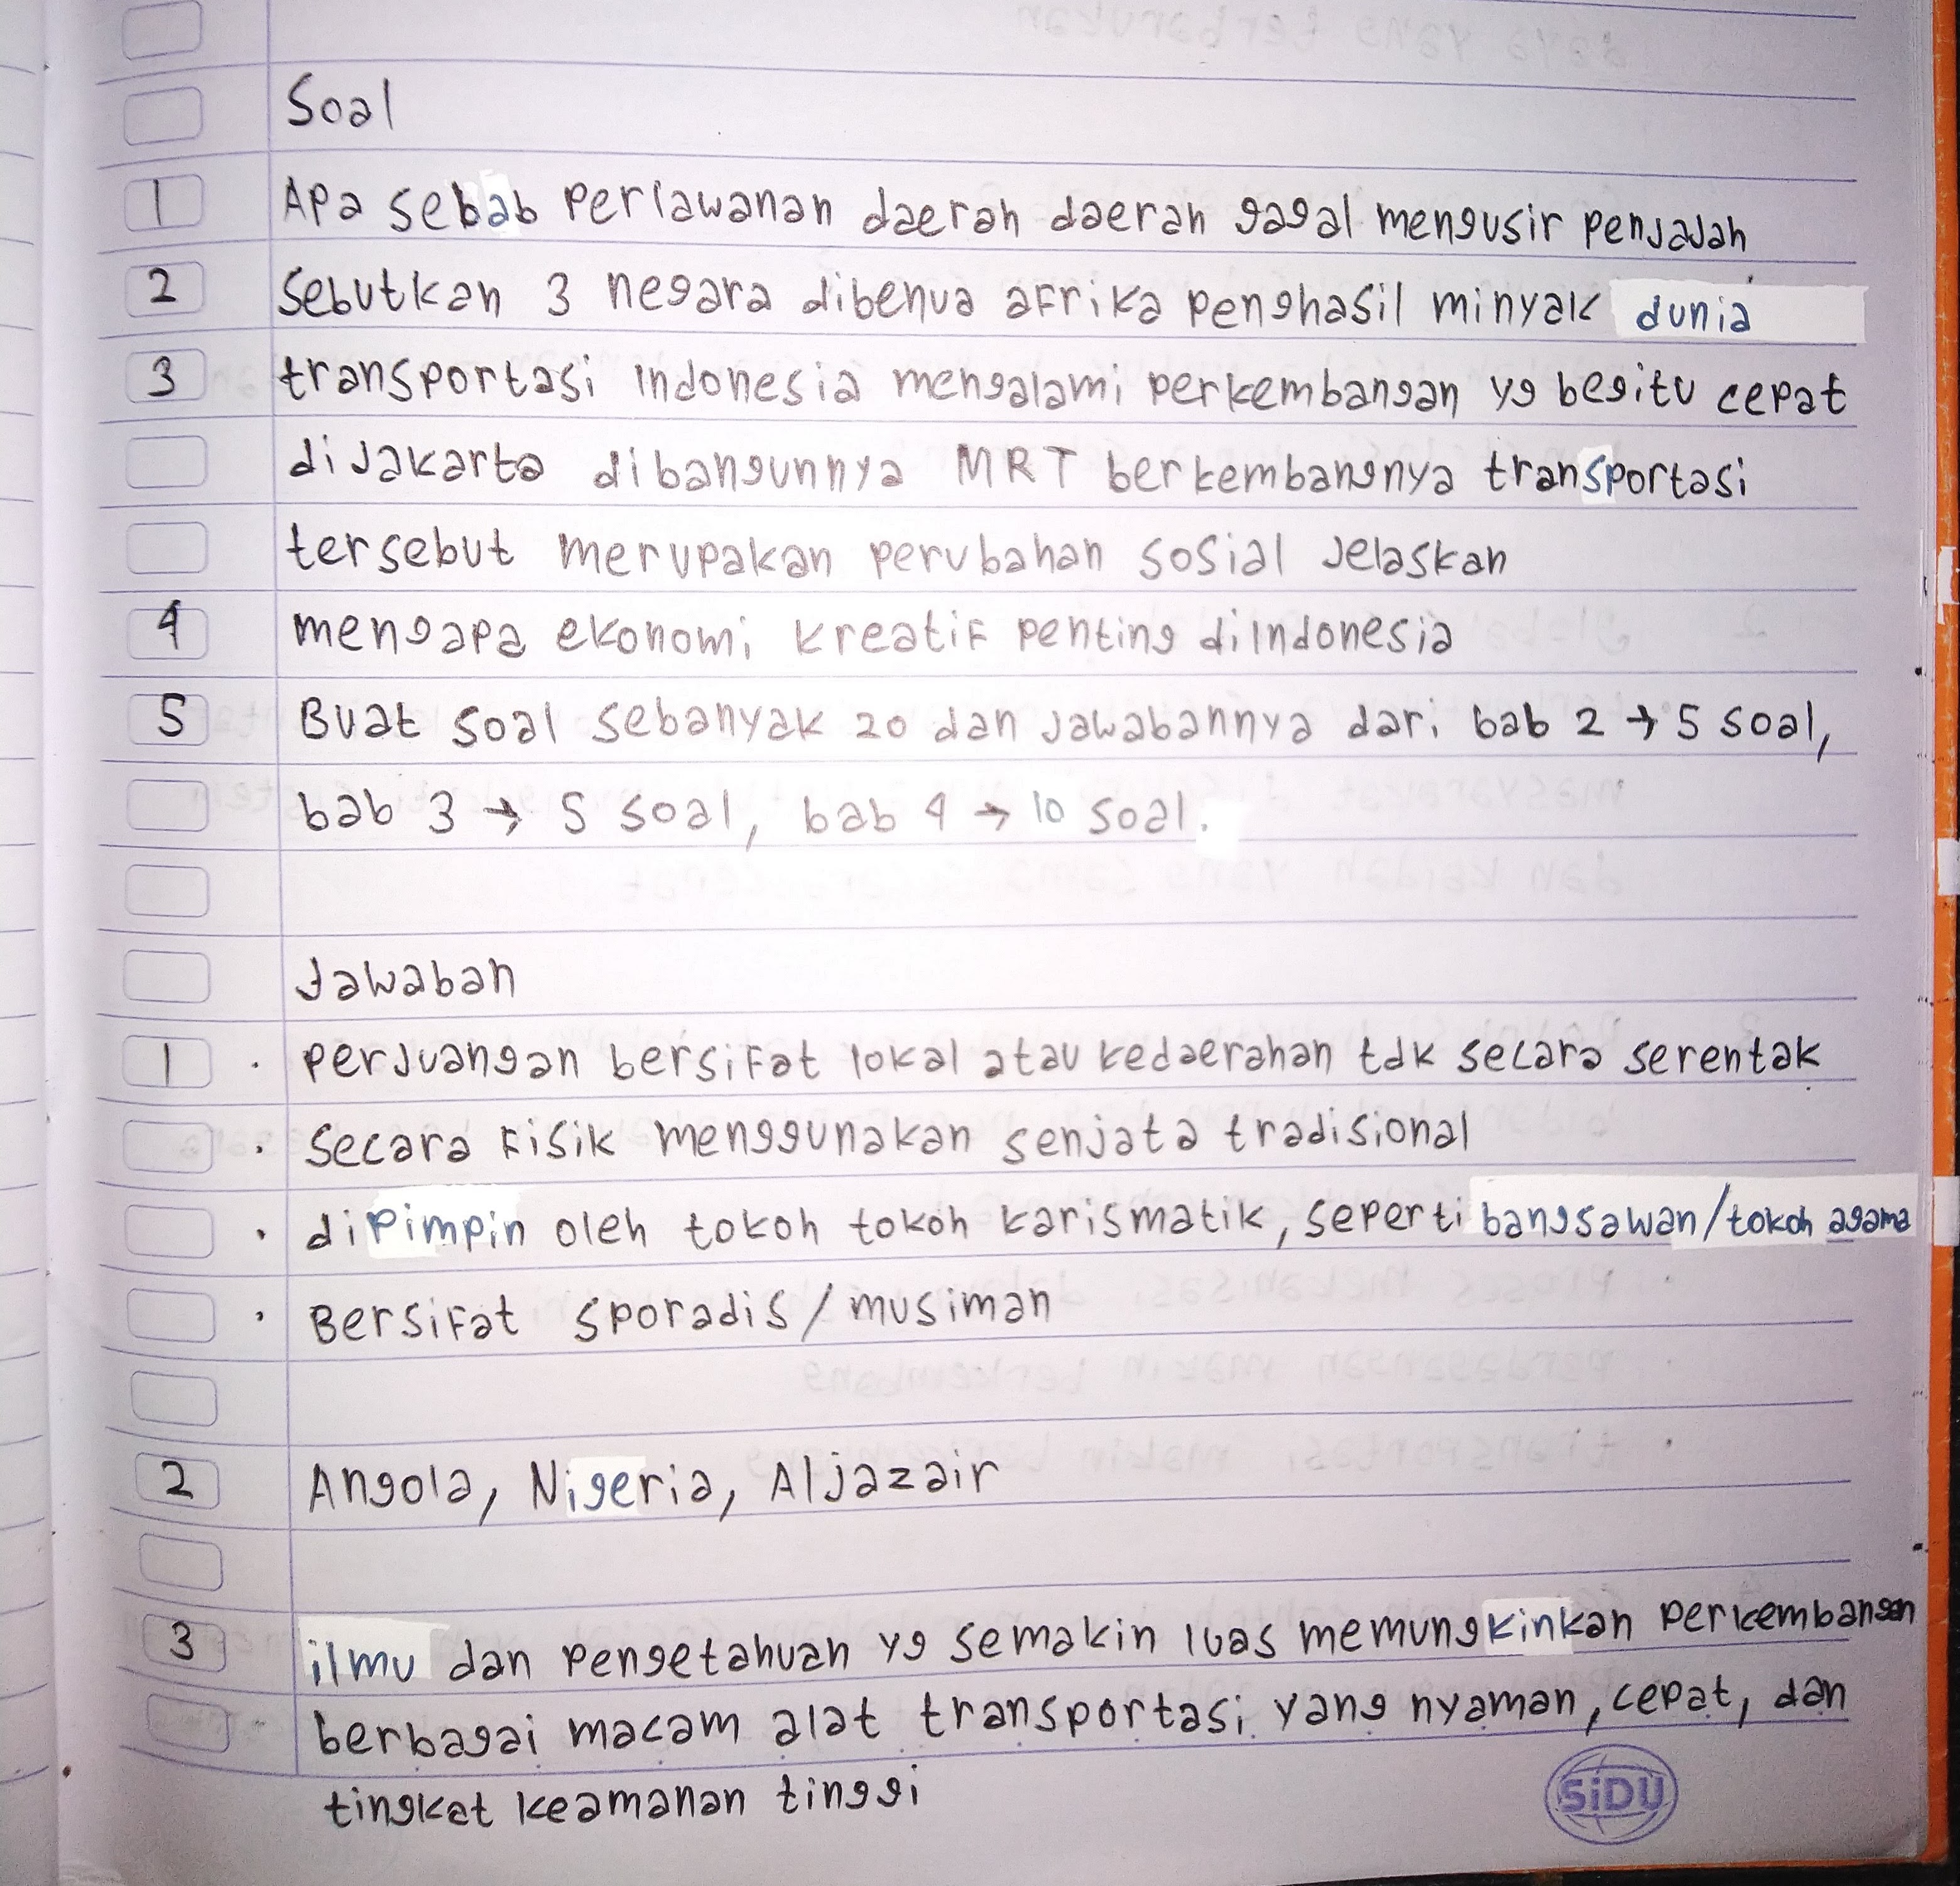 Soal
1 Apa sebab perlawanan daerah daerah gagal mengusir penjajah
2 Sebutkan 3 negara dibenua afrika penghasil minyak dunia
3 transportasi indonesia mengalami perkembangan yg begitu cepat
di jakarta dibangunnya MRT berkembangnya transportasi
tersebut merupakan perubahan sosial jelaskan
4 mengapa ekonomi kreatif penting diIndonesia
5 Buat soal sebanyak 20 dan jawabannya dari bab 2 → 5 soal,
bab 3 → 5 soal, bab 4 → 10 soal.
Jawaban
1 · perjuangan bersifat lokal atau kedaerahan tdk secara serentak
· secara fisik menggunakan senjata tradisional
· dipimpin oleh tokoh tokoh karismatik, seperti bangsawan/tokoh agama
· Bersifat sporadis/musiman
2 Angola, Nigeria, Aljazair
3 ilmu dan pengetahuan yg semakin luas memungkinkan perkembangan
berbagai macam alat transportasi yang nyaman, cepat, dan
tingkat keamanan tinggi
SiDU